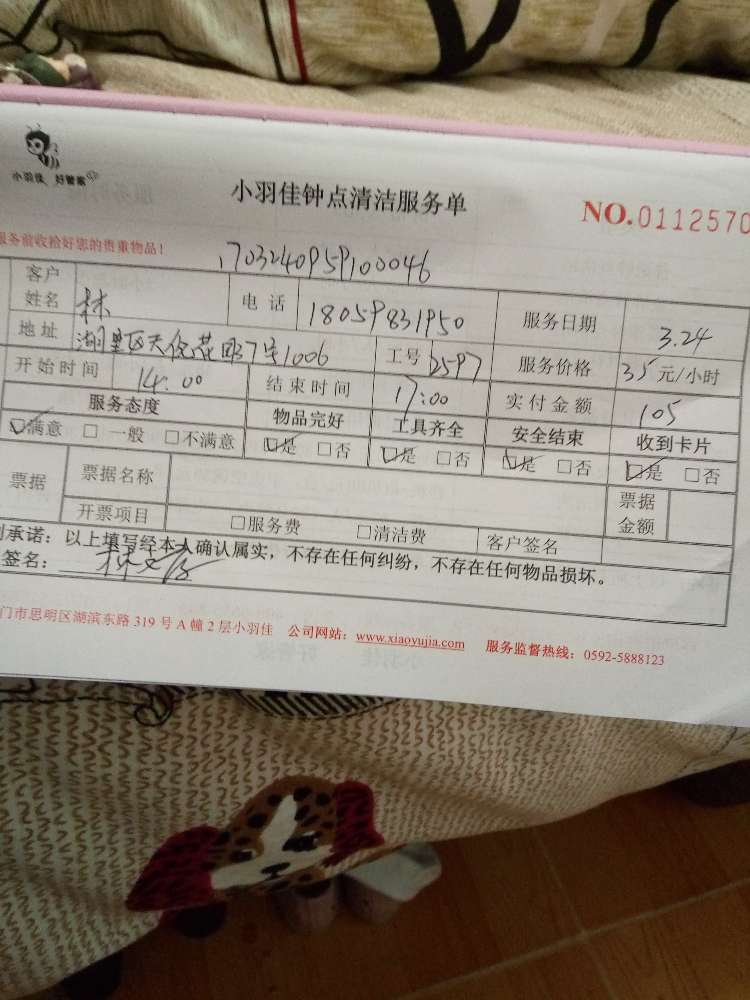 小羽佳 好管家
小羽佳钟点清洁服务单
NO.0112570
服务前收拾好您的贵重物品!
1703240959100046
客户姓名 林 电话 18059831950 服务日期 3.24
地址 湖里区天 花园7号1006 工号 B597 服务价格 35元/小时
开始时间 14:00 结束时间 17:00 实付金额 105
服务态度 物品完好 工具齐全 安全结束 收到卡片
☑满意 □一般 □不满意 ☑是 □否 ☑是 □否 ☑是 □否 ☑是 □否
票据 票据名称 票据金额
开票项目 □服务费 □清洁费 客户签名
承诺:以上填写经本人确认属实,不存在任何纠纷,不存在任何物品损坏。
签名: 林
门市思明区湖滨东路 319 号 A 幢 2 层小羽佳 公司网站:www.xiaoyujia.com 服务监督热线:0592-5888123